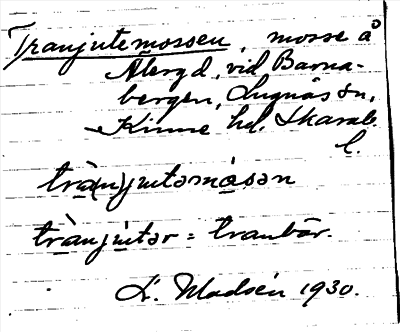 Tranjutemossen, mosse å
Alergd, vid Barna-
bergen, Lugnås sn,
Kinne hd. Skarab.
l.
trà(n)jutəmåsən
trànjùtər = tranbär.
L. Modsén 1930.